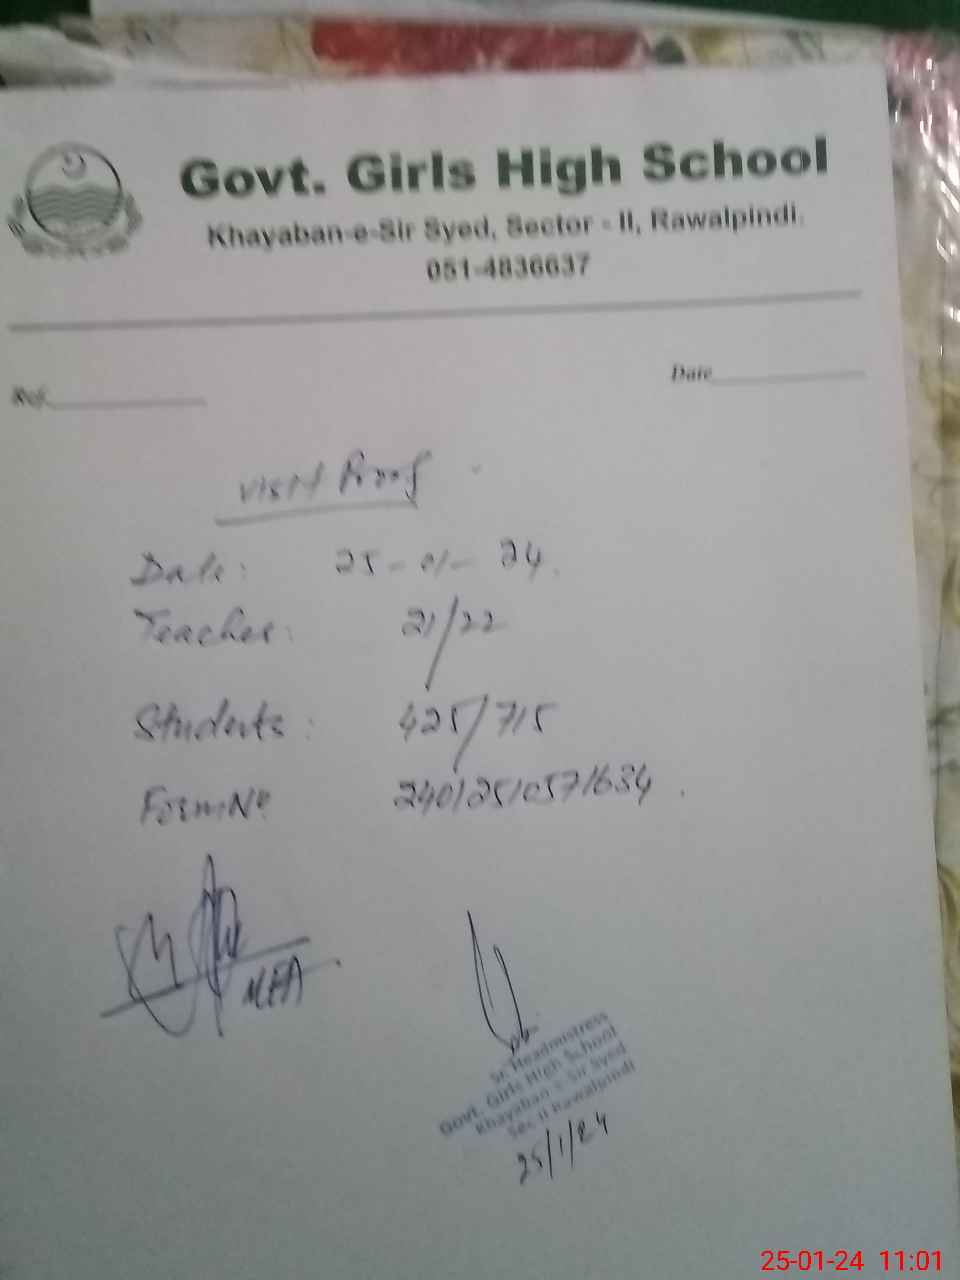 Govt. Girls High School
Khayaban-e-Sir Syed, Sector - II, Rawalpindi.
051-4836637
Ref.
Date
Visit Proof
Date: 25-01-24.
Teacher: 21/22
Students: 425/715
Form No 24012510571634.
MEA
Sr. Headmistress
Govt. Girls High School
Khayaban-e-Sir Syed
Sec II Rawalpindi
25/1/24
25-01-24 11:01